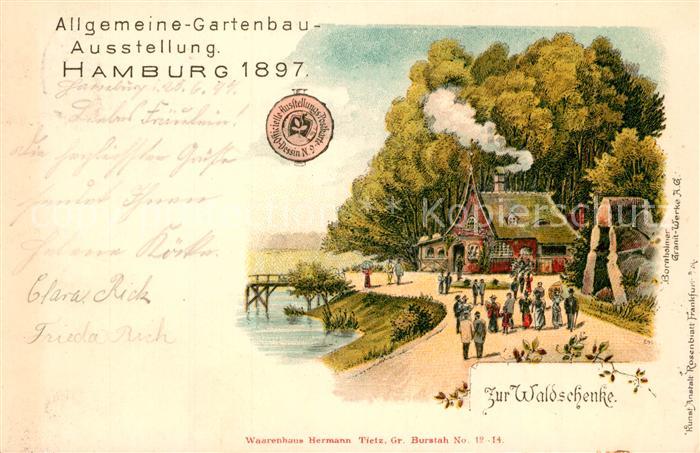 Allgemeine-Gartenbau-
Ausstellung.
HAMBURG 1897.
Officielle Ausstellungs-Postkarte
Dessin N. 9
Hamburg
Liebes Fräulein!
Die herzlichsten Grüße
sendet Ihnen
Clara Rich
Frieda Rich
Zur Waldschenke.
Bornholmer
Granit-Werke A.G.
Kunst Anstalt Rosenblatt Frankfurt a/M.
Waarenhaus Hermann Tietz, Gr. Burstah No. 12-14.
Wir Schützen Ihr Kopierschutz